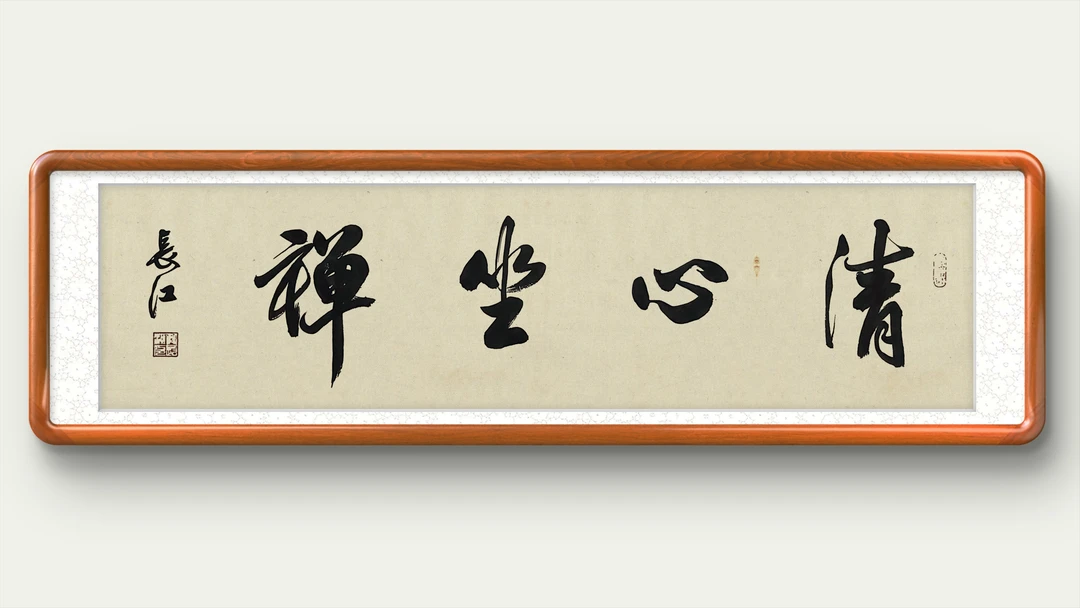 清心坐禅
長江